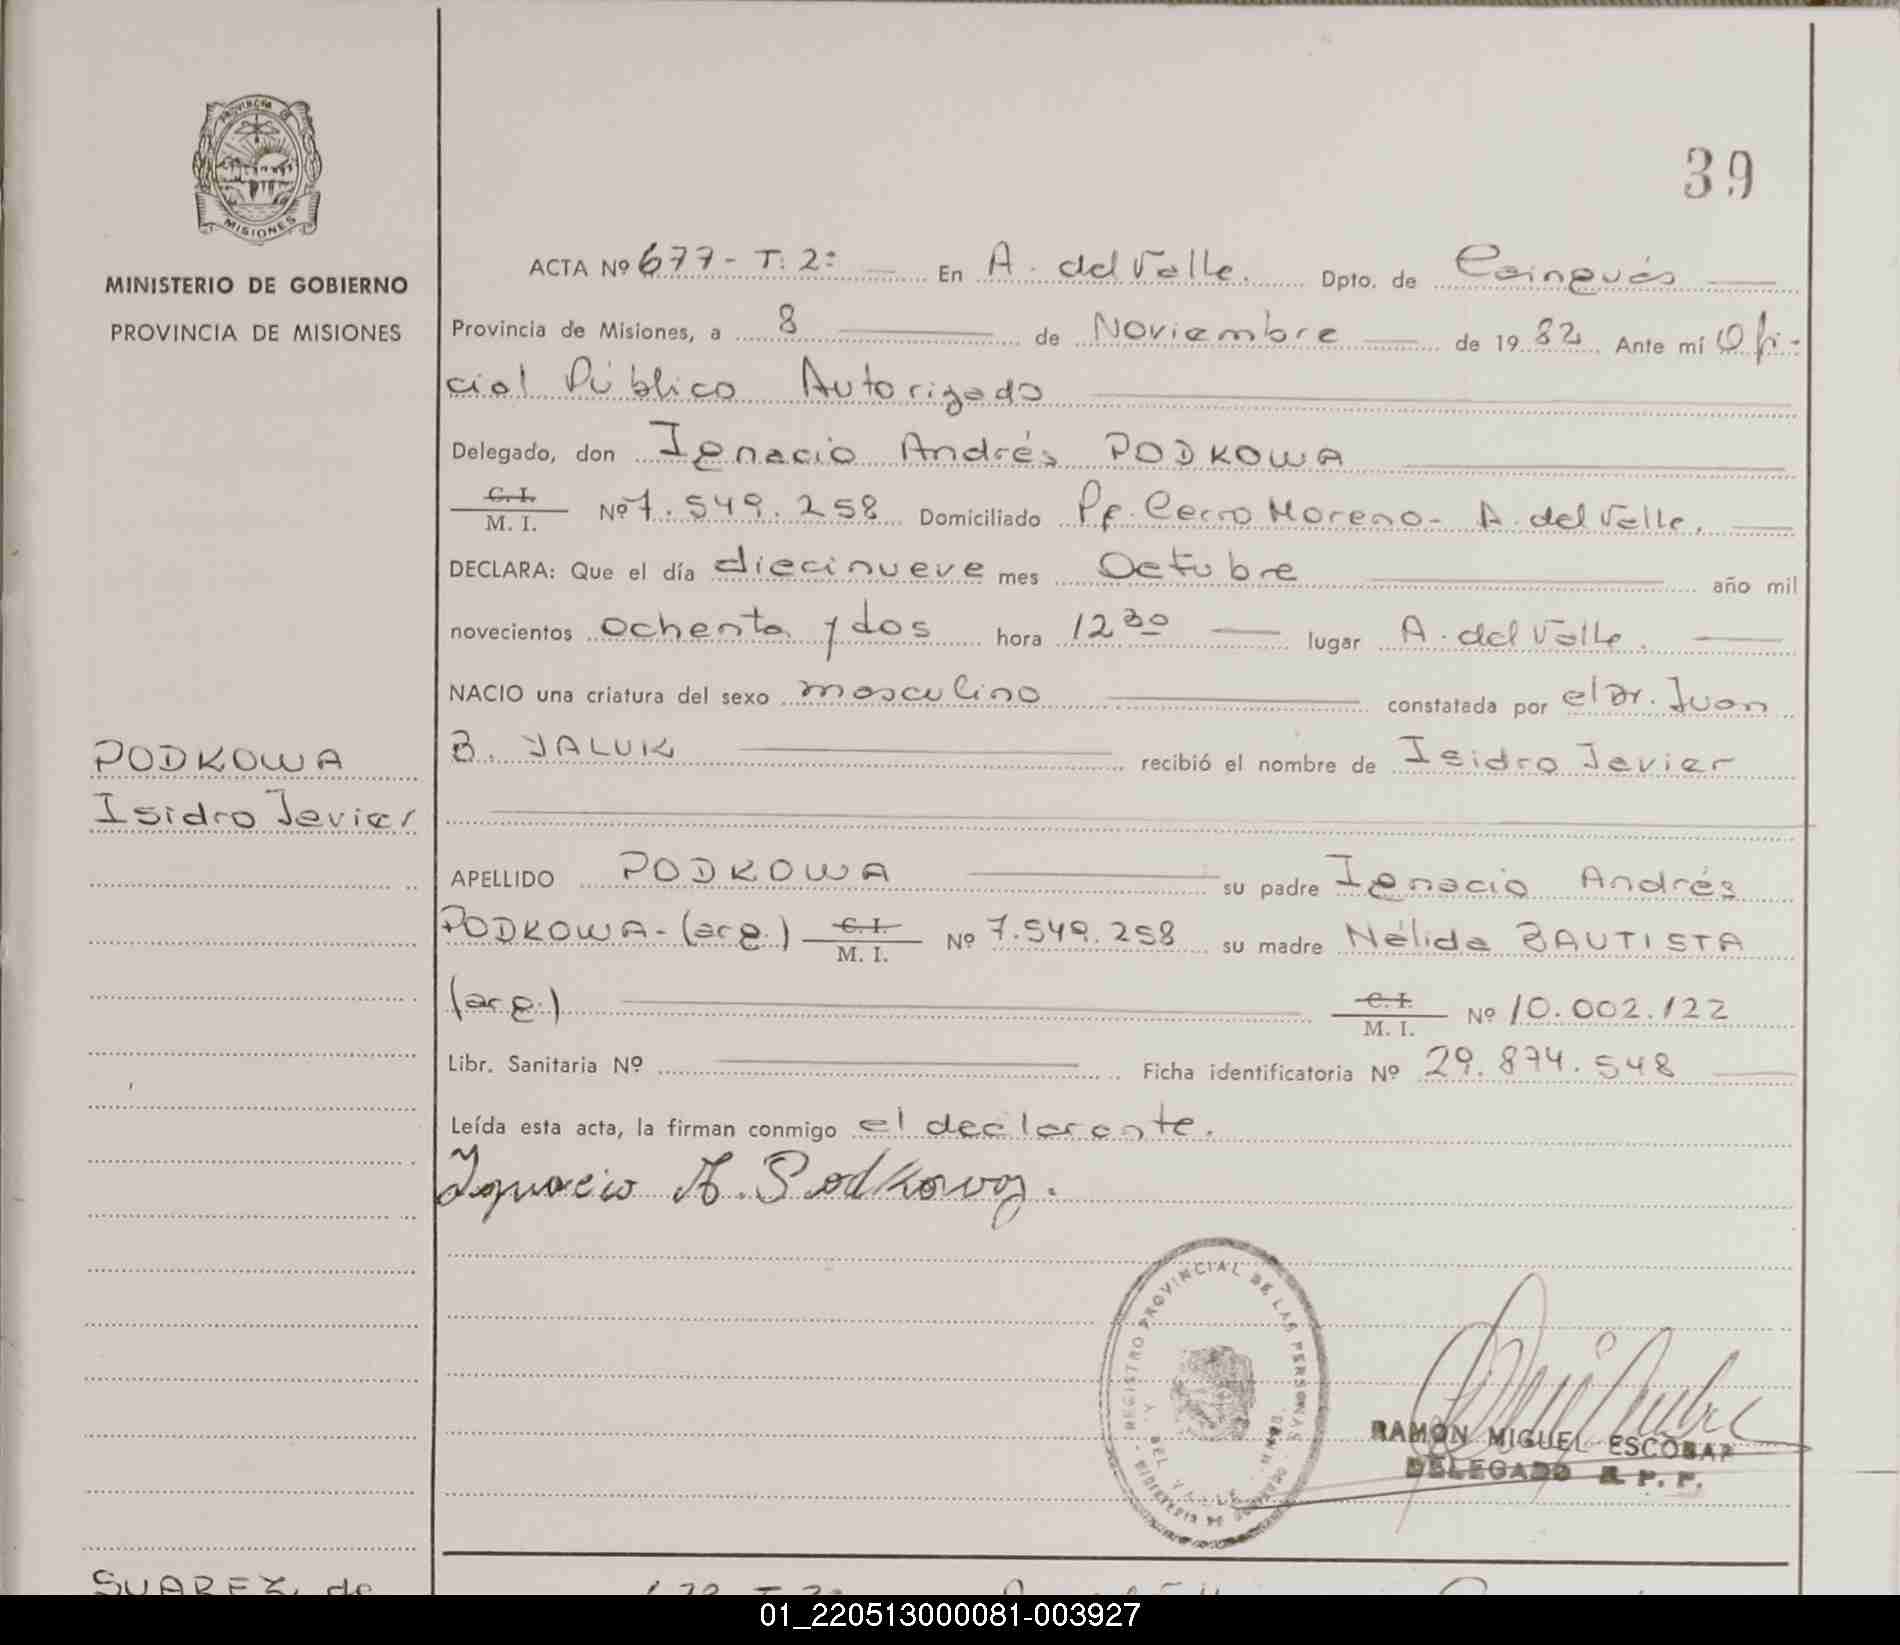 PROVINCIA DE
MISIONES
MINISTERIO DE GOBIERNO
PROVINCIA DE MISIONES
39
ACTA Nº 677 - T: 2: En A. del Valle. Dpto. de Cainguás
Provincia de Misiones, a 8 de Noviembre de 1982. Ante mí Ofi-
cial Público Autorizado
Delegado, don Ignacio Andrés PODKOWA
C. I.
M. I. Nº 7.549.258 Domiciliado Pje. Cerro Moreno - A. del Valle.
DECLARA: Que el día diecinueve mes Octubre año mil
novecientos ochenta y dos hora 12 30 lugar A. del Valle.
NACIO una criatura del sexo masculino constatada por el Dr. Juan
B. YALUK recibió el nombre de Isidro Javier
PODKOWA
Isidro Javier
APELLIDO PODKOWA su padre Ignacio Andrés
PODKOWA - (arg.) C. I. M. I. Nº 7.549.258 su madre Nélida BAUTISTA
(arg.) C. I. M. I. Nº 10.002.122
Libr. Sanitaria Nº Ficha identificatoria Nº 29.874.548
Leída esta acta, la firman conmigo el declarante.
Ignacio A. Podkowa.
REGISTRO PROVINCIAL DE LAS PERSONAS
DEL VALLE
RAMON MIGUEL ESCOBAR
DELEGADO R. P. P.
SUAREZ, de
01_220513000081-003927